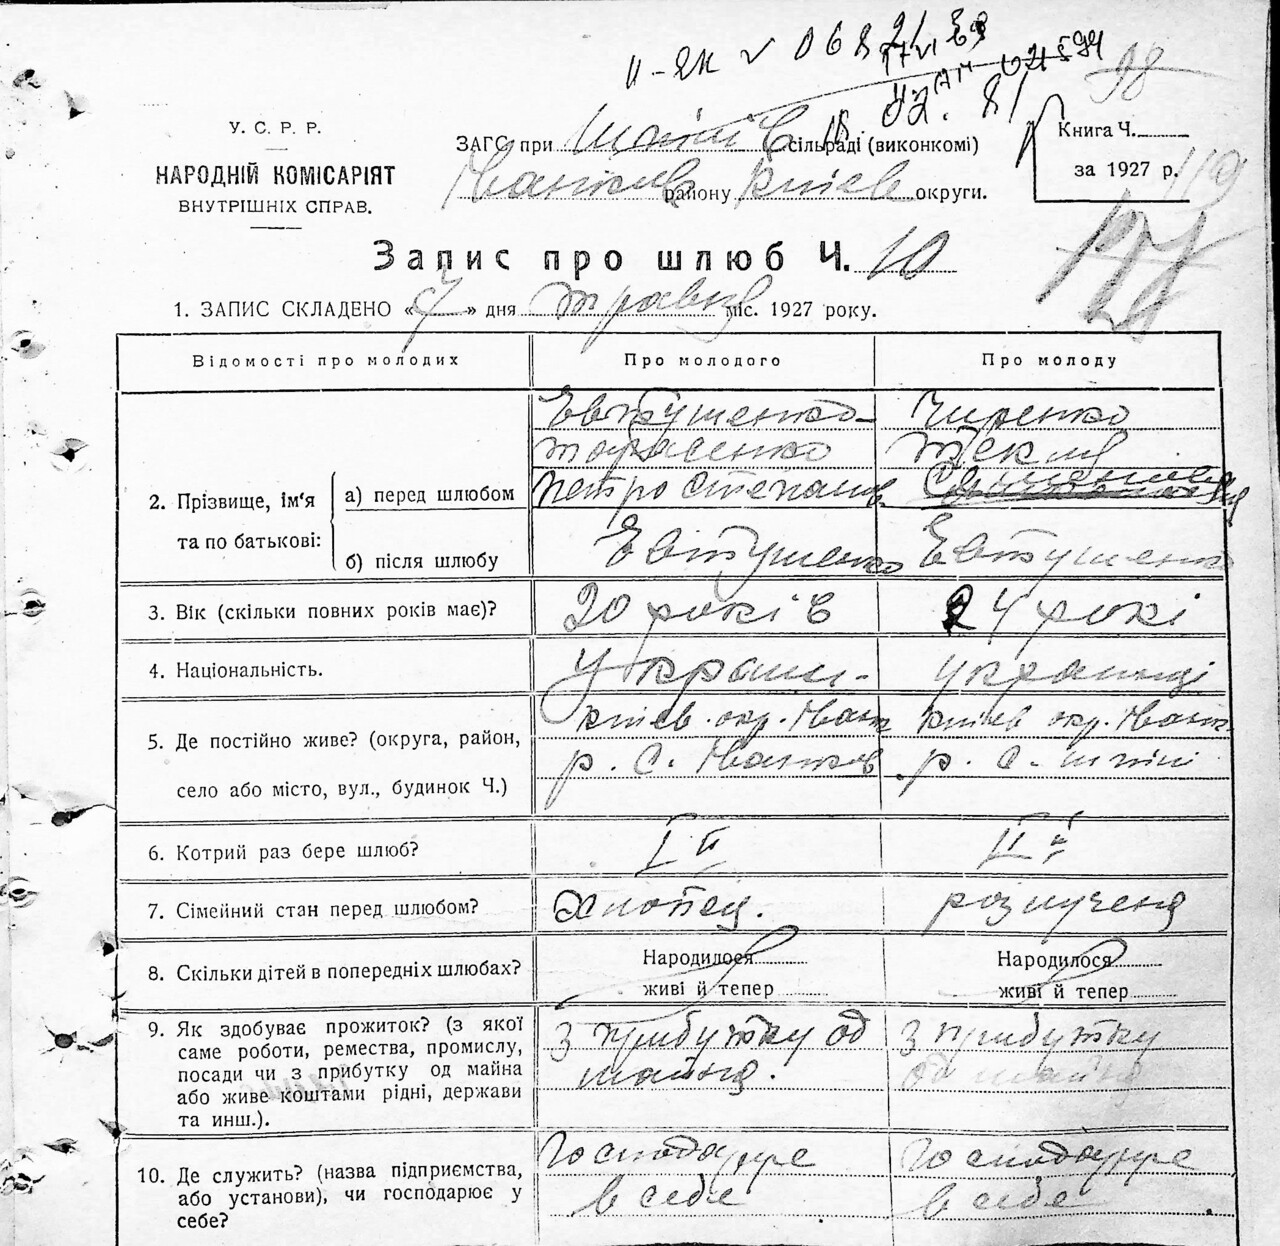 У. С. Р. Р.
НАРОДНІЙ КОМІСАРІЯТ
ВНУТРІШНІХ СПРАВ.
ЗАГС при Шпилів сільраді (виконкомі)
Іванків району Київ округи.
Книга Ч.
за 1927 р.
98
119
Запис про шлюб Ч. 10
1. ЗАПИС СКЛАДЕНО «7» дня травня міс. 1927 року.
Відомості про молодих
Про молодого
Про молоду
2. Прізвище, ім'я та по батькові:
а) перед шлюбом
Евтушенко-
Тарасенко
Петро Степанов
Чиренко
Текля
б) після шлюбу
Евтушенко
Евтушенко
3. Вік (скільки повних років має)?
20 років
24 рокі
4. Національність.
Украин-
украинці
5. Де постійно живе? (округа, район,
село або місто, вул., будинок Ч.)
Київ. окр. Іванк
р. С. Іванков
Київ окр. Іванк
р. С. Шпилі
6. Котрий раз бере шлюб?
I й
II й
7. Сімейний стан перед шлюбом?
Хлопец.
розлучена
8. Скільки дітей в попередніх шлюбах?
Народилося
живі й тепер
Народилося
живі й тепер
9. Як здобуває прожиток? (з якої
саме роботи, ремества, промислу,
посади чи з прибутку од майна
або живе коштами рідні, держави
та инш.).
З прибутку од
майна.
З прибутку
од майна
10. Де служить? (назва підприємства,
або установи), чи господарює у
себе?
Господарре
в себе
Господарре
в себе